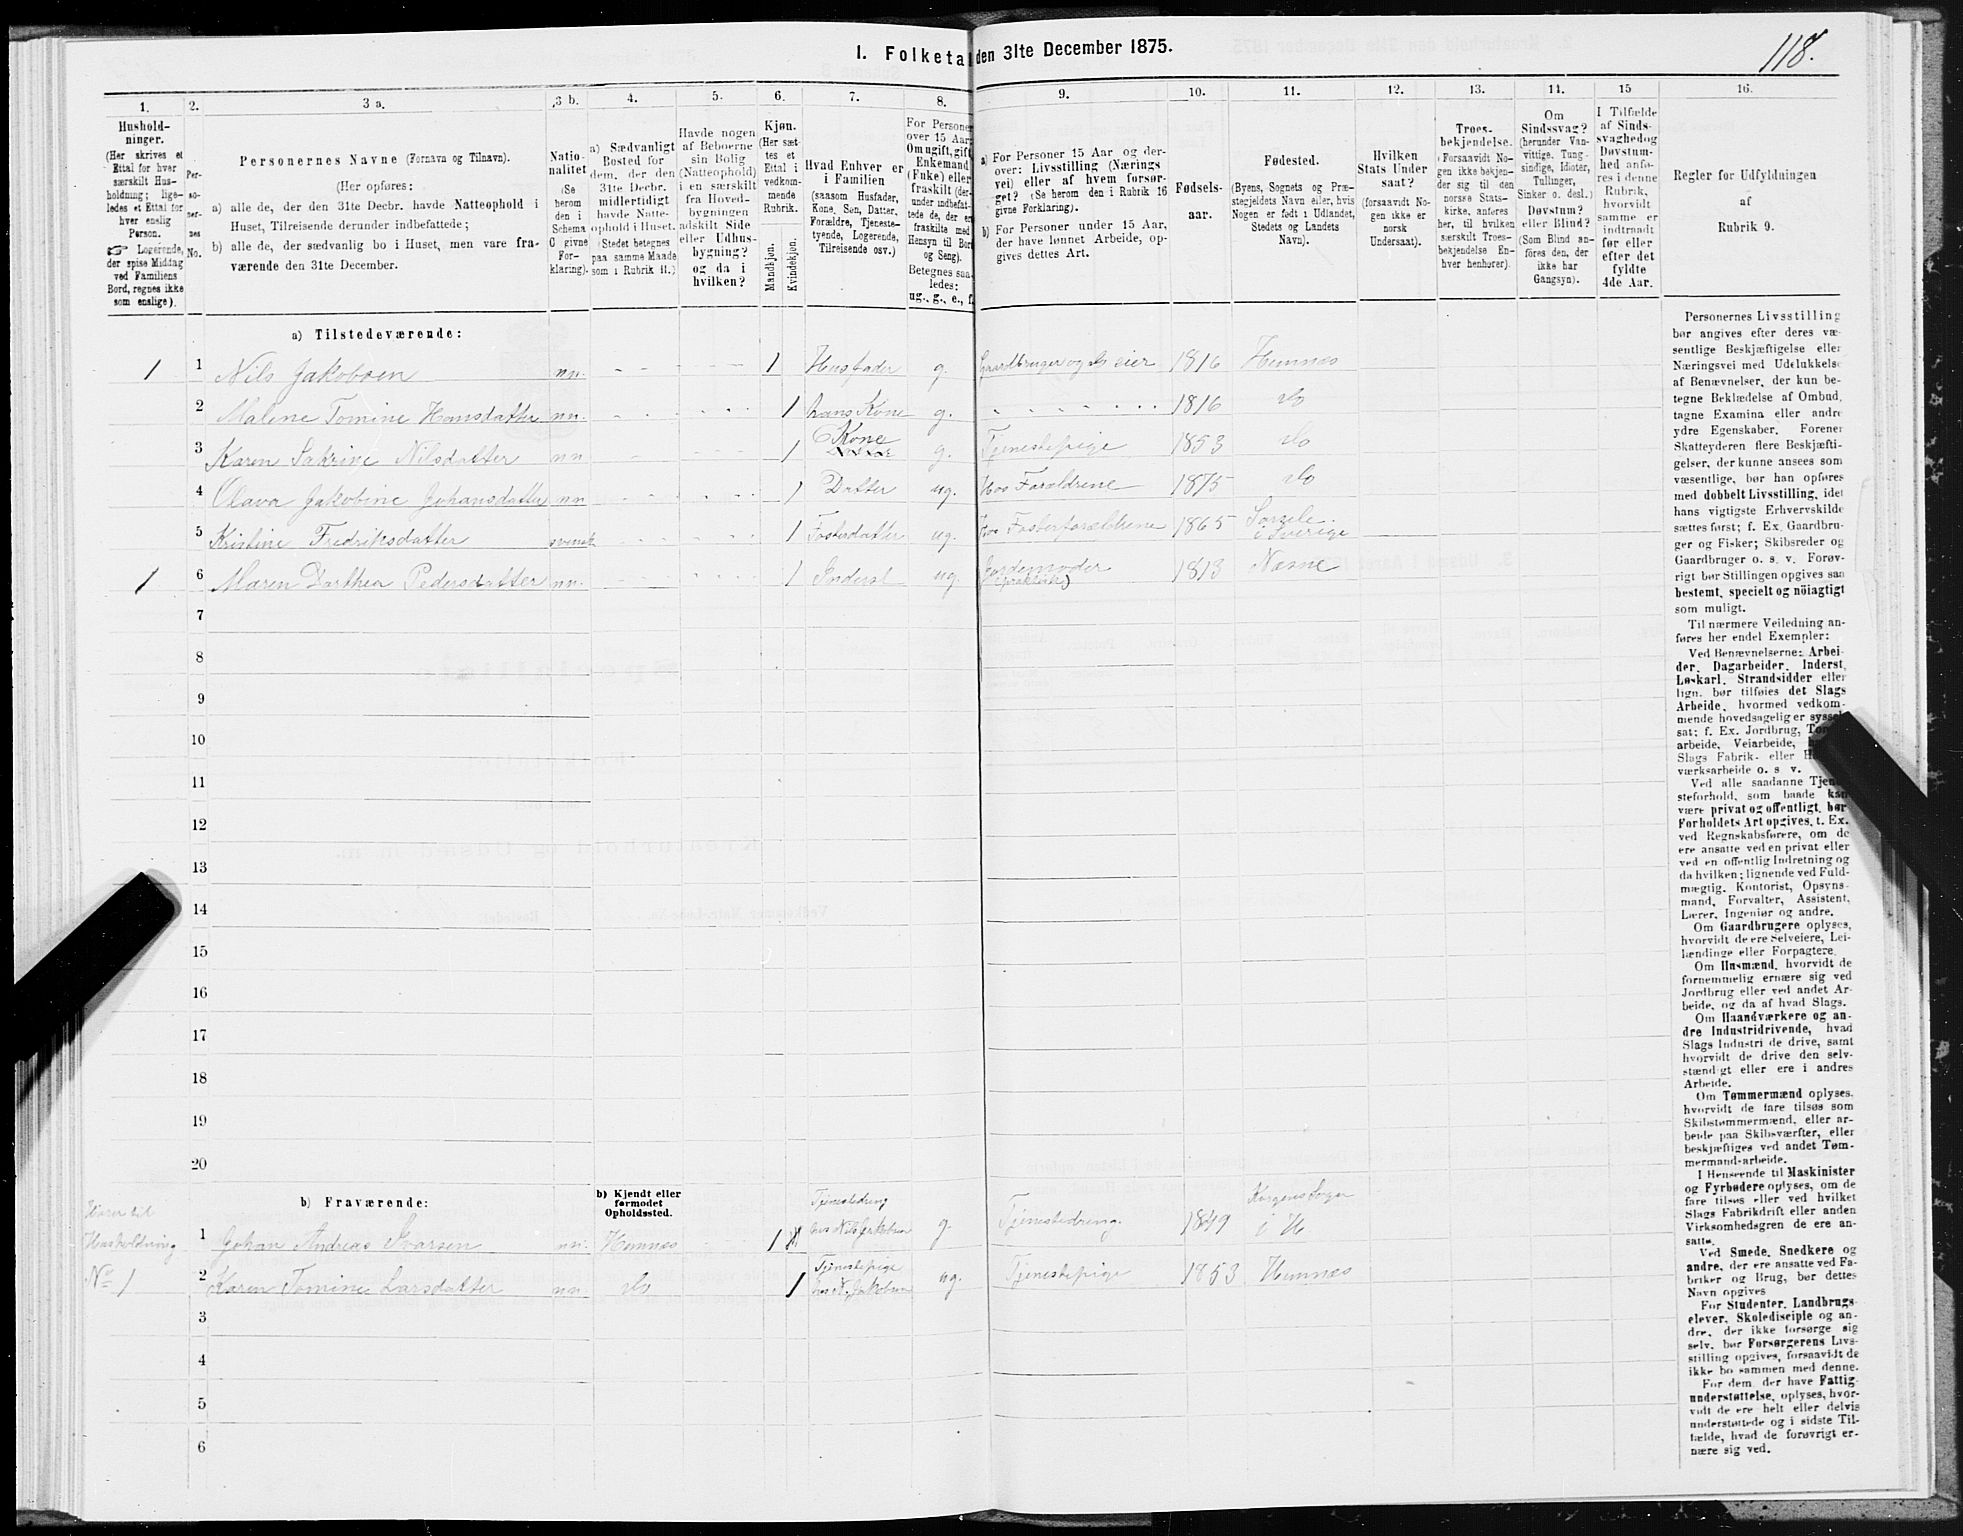 I. Folketa den 31te December 1875.
118.
1.
2.
3 a.
3 b.
4.
5.
6.
7.
8.
9.
10.
11.
12.
13.
14.
15
16.
Hushold-
ninger.
(Her skrives et
Ettal for hver
særskilt Hus-
holdning; lige-
ledes et Ettal for
hver enslig
Person.
☞ Logerende,
der spise Middag
ved Familiens
Bord, regnes ikke
som enslige).
Per-
so-
ner-
nes
No.
Personernes Navne (Fornavn og Tilnavn).
(Her opføres:
a) alle de, der den 31te Decbr. havde Natteophold i
Huset, Tilreisende derunder indbefattede;
b) alle de, der sædvanlig bo i Huset, men vare fra-
værende den 31te December.
Natio-
nalitet
(Se
herom
den i
Schema
C givne
For-
klaring).
a) Sædvanligt
Bosted for
dem, der den
31te Decbr.
midlertidigt
havde Natte-
ophold i Huset.
(Stedet betegnes
paa samme Maade
som i Rubrik 11.)
Havde nogen
af Beboerne
sin Bolig
(Natteophold)
i en særskilt
fra Hoved-
bygningen
adskilt Side
eller Udhus-
bygning?
og da i
hvilken?
Kjøn.
(Her sæt-
tes et
Ettal i
vedkom-
mende
Rubrik.
Mandkjøn.
Kvindekjøn.
Hvad Enhver er
i Familien
(saasom Husfader,
Kone, Søn, Datter,
Forældre, Tjeneste-
tyende, Logerende,
Tilreisende osv.)
For Personer
over 15 Aar:
Om ugift, gift,
Enkemand
(Enke) eller
fraskilt (der-
under indbefat-
tede de, der er
fraskilte med
Hensyn til Bord
og Seng).
Betegnes saa-
ledes:
ug., g., e., f.
a) For Personer 15 Aar og der-
over: Livsstilling (Nærings
vei) eller af hvem forsør-
get? (Se herom den i Rubrik 16
givne Forklaring).
b) For Personer under 15 Aar,
der have lønnet Arbeide, op-
gives dettes Art.
Fødsels-
aar.
Fødested.
(Byens, Sognets og Præ-
stegjeldets Navn eller, hvis
Nogen er født i Udlandet,
Stedets og Landets
Navn).
Hvilken
Stats Under
saat?
(forsaavidt No-
gen ikke er
norsk
Undersaat).
Troes-
bekjendelse.
(Forsaavidt No-
gen ikke bekjen-
der sig til den
norske Stats-
kirke, anføres
her, til hvilken
særskilt Troes-
bekjendelse En-
hver henhører).
Om
Sindssvag?
(herunder Van-
vittige, Tung-
sindige, Idioter,
Tullinger,
Sinker o. desl.)
Døvstum?
eller Blind?
(Som Blind an-
føres den, der
ikke har
Gangsyn).
I Tilfælde
af Sinds-
svaghed og
Døvstum-
hed anfø-
res i denne
Rubrik,
hvorvidt
samme er
indtraadt
før eller
efter det
fyldte
4de Aar.
Regler for Udfyldningen
af
Rubrik 9.
a) Tilstedeværende:
1 1 Nils Jakobsen nn. 1 Husfader g. Gaardbruger og ds eier 1816 Hemnæs
2 Malene Tomine Hansdatter nn. 1 hans Kone g. 1816 do
3 Karen Sakrine Nilsdatter nn 1 Kone g. Tjenestepige 1853 do
4 Olava Jakobine Johansdatter nn 1 Datter ug. Hos Forældrene 1875 do
5 Kristine Fredriksdatter svensk 1 Fosterdatter ug. Hos Fosterforældrene 1865 Sorsele
i Sverige
1 6 Maren Darthea Pedersdatter nn. 1 Inderst ug. Jordemoder
1813 Næsne
7
8
9
10
11
12
13
14
15
16
17
18
19
20
b) Fraværende:
b) Kjendt eller
formodet
Opholdssted.
Hører til
Husholdning
No 1
1 Johan Andreas Ivarsen nn. Hemnæs 1 Tjenestedreng
hos Nils Jakobsen g. Tjenestedreng. 1849 Korgens Sogn
i H
2 Karen Tomine Larsdatter nn. do 1 Tjenestepige
hos N. Jakobsen ug. Tjenestepige 1853 Hemnæs
3
4
5
6
Personernes Livsstilling
bør angives efter deres væ-
sentlige Beskjæftigelse eller
Næringsvei med Udelukkelse
af Benævnelser, der kun be-
tegne Beklædelse af Ombud,
tagne Examina eller andre
ydre Egenskaber. Forener
Skatteyderen flere Beskjæfti-
gelser, der kunne ansees som
væsentlige, bør han opføres
med dobbelt Livsstilling, idet
hans vigtigste Erhvervskilde
sættes først; f. Ex. Gaardbru-
ger og Fisker; Skibsreder og
Gaardbruger o. s. v. Forøv-
rigt bør Stillingen opgives saa
bestemt, specielt og nöiagtigt
som muligt.
Til nærmere Veiledning an-
føres her endel Exempler:
Ved Benævnelserne: Arbei-
der, Dagarbeider, Inderst,
Løskarl, Strandsidder eller
lign. bør tilføies det Slags
Arbeide, hvormed vedkom-
mende hovedsagelig er syssel-
sat; f. Ex. Jordbrug,
arbeide, Veiarbeide,
Slags Fabrik- eller
værksarbeide o. s v.
Ved alle saadanne
steforhold, som baade
være privat og offentligt, bør
Forholdets Art opgives, t. Ex.
ved Regnskabsførere, om de
ere ansatte ved en privat eller
ved en offentlig Indretning og
da hvilken; lignende ved Fuld-
mægtig, Kontorist, Opsyns-
mand, Forvalter, Assistent,
Lærer, Ingeniør og andre.
Om Gaardbrugere oplyses,
hvorvidt de ere Selveiere, Lei-
lændinge eller Forpagtere.
Om Husmænd, hvorvidt de
fornemmelig ernære sig ved
Jordbrug eller ved andet Ar-
beide, og da af hvad Slags.
Om Haandværkere og an-
dre Industridrivende, hvad
Slags Industri de drive, samt
hvorvidt de drive den selv-
stændigt eller ere i andres
Arbeide.
Om Tømmermænd oplyses,
hvorvidt de fare tilsøs som
Skibstømmermænd, eller ar-
beide paa Skibsværfter, eller
beskjæftiges ved andet Tøm-
mermandsarbeide.
I Henseende til Maskinister
og Fyrbødere oplyses, om de
fare tilsøs eller ved hvilket
Slags Fabrikdrift eller anden
Virksomhedsgren de ere an-
satte.
Ved Smede, Snedkere og
andre, der ere ansatte ved Fa-
briker og Brug, bør dettes
Navn opgives
For Studenter, Landbrugs-
elever, Skoledisciple og an-
dre, der ikke forsørge sig
selv, bør Forsørgerens Livs-
stilling opgives, forsaavidt de
ikke bo sammen med denne.
For dem, der have Fattig-
understøttelse, oplyses, hvor-
vidt de ere helt eller delvis
understøttede og i sidste Til-
fælde, hvad de forøvrigt er-
nære sig ved.